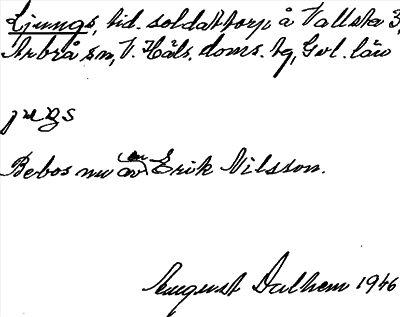 Ljungs, tid. soldattorp å Vallsta 3,
Arbrå sn, V. Häls. doms. tg, Gvl. län
juŋs
Bebos nu av en Erik Nilsson.
August Dalhem 1946